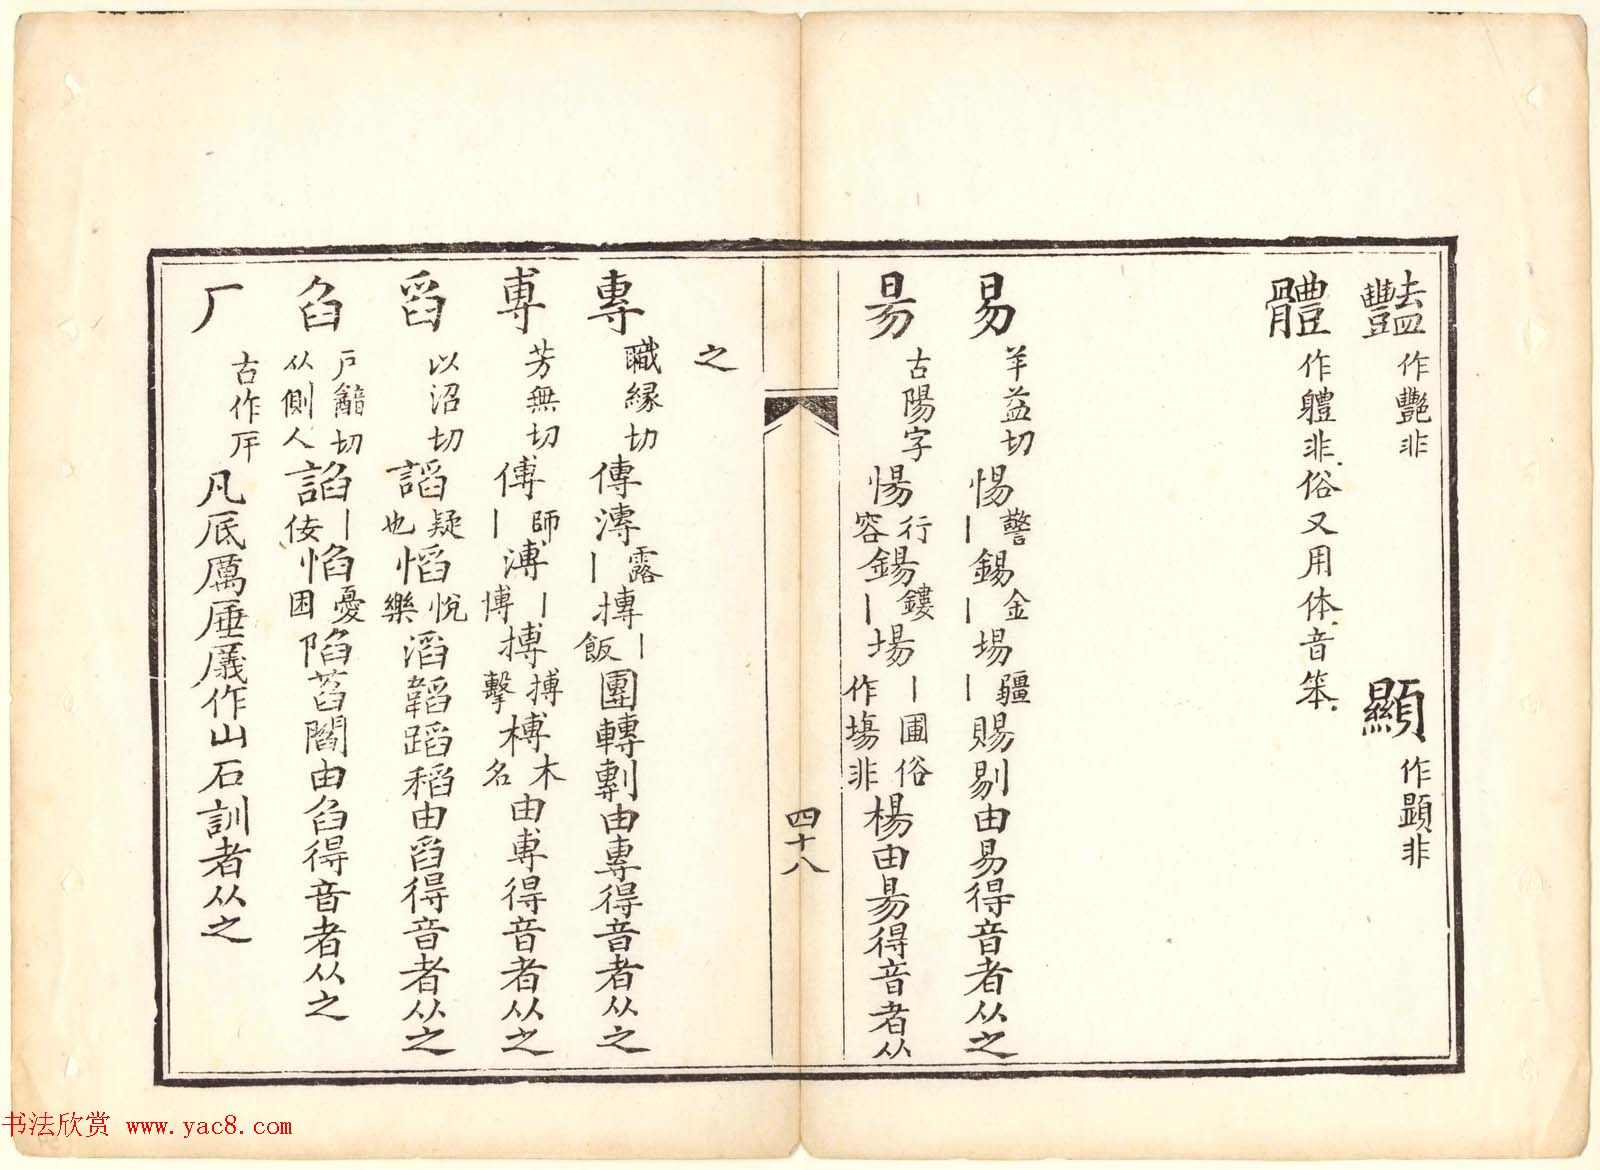 豔作艷非 顯作顕非
體作軆非俗又用体音笨
易羊益切惕警丨錫金丨埸疆丨賜剔由易得音者从之
昜古陽字愓行容鍚鏤丨場丨圃俗作塲非楊由昜得音者从
四十八
之
專職緣切傳漙露丨摶丨飯團轉剸由專得音者从之
尃芳無切傅師丨溥丨博搏搏擊榑木名由尃得音者从之
舀以沼切謟疑也慆悅樂滔韜蹈稻由舀得音者从之
臽戶韽切从側人諂丨佞惂憂困陷萏閻由臽得音者从之
厂古作厈凡厎厲厓作山石訓者从之
书法欣赏 www.yac8.com